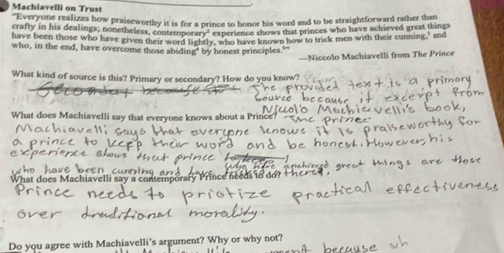 Machiavelli on Trust
"Everyone realizes how praiseworthy it is for a prince to honor his word and to be straightforward rather than
crafty in his dealings; nonetheless, contemporary² experience shows that princes who have achieved great things
have been those who have given their word lightly, who have known how to trick men with their cunning,³ and
who, in the end, have overcome those abiding⁴ by honest principles."
—Niccolo Machiavelli from The Prince
What kind of source is this? Primary or secondary? How do you know?
The provided text is a primary
source because it excerpt from
Nicolo Machiavelli's book,
What does Machiavelli say that everyone knows about a Prince? The prince
Machiavelli says that everyone knows it is praiseworthy for
a prince to keep their word and be honest. However, his
experience shows that prince who have achieved great things are those
who have been cunning and have tricked others.
What does Machiavelli say a contemporary Prince needs to do?
Prince needs to priotize practical effectiveness
over traditional morality.
Do you agree with Machiavelli's argument? Why or why not?
because wh